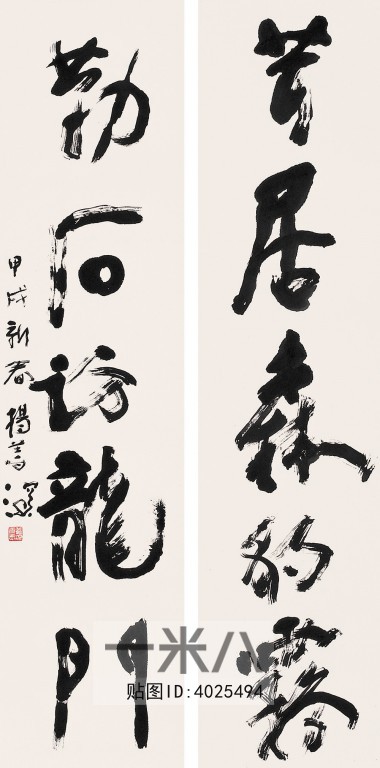 居森豹霧
勒石訪龍門
甲戌新春楊善深
十米八
贴图ID:4025494